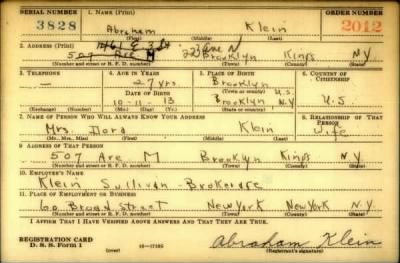 SERIAL NUMBER 1. NAME (Print) ORDER NUMBER
3828 Abraham Klein 2012
(First) (Middle) (Last)
2. ADDRESS (Print)
507 Ave M Brooklyn Kings N.Y
(Number and street or R. F. D. number) (Town) (County) (State)
3. TELEPHONE 4. AGE IN YEARS 5. PLACE OF BIRTH 6. COUNTRY OF CITIZENSHIP
— 27 yrs. Brooklyn U.S.
DATE OF BIRTH (Town or county)
10-11-13 Brooklyn N.Y U.S.
(Exchange) (Number) (Mo.) (Day) (Yr.) (State or country)
7. NAME OF PERSON WHO WILL ALWAYS KNOW YOUR ADDRESS 8. RELATIONSHIP OF THAT PERSON
Mrs. Dora Klein Wife
(Mr., Mrs., Miss) (First) (Middle) (Last)
9. ADDRESS OF THAT PERSON
507 Ave M Brooklyn Kings N.Y
(Number and street or R. F. D. number) (Town) (County) (State)
10. EMPLOYER'S NAME
Klein Sullivan - Brokerage
11. PLACE OF EMPLOYMENT OR BUSINESS
60 Broad Street New York New York N.Y.
(Number and street or R. F. D. number) (Town) (County) (State)
I AFFIRM THAT I HAVE VERIFIED ABOVE ANSWERS AND THAT THEY ARE TRUE.
REGISTRATION CARD
D. S. S. Form 1 (over) 16—17105 Abraham Klein
(Registrant's signature)